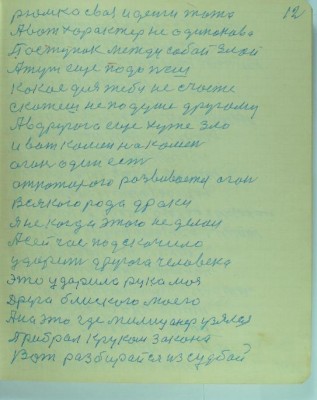 12
рюмка своя и деньги тоже
А вот характер не одинакова
Поступок между собой злой
А тут еще подожчи
Какое для тебу не счасте
Скажеш не подуше другому
А вдругога еще хуже зло
И вот камен на камен
огон один ест
от которого развивается огон
Всякого рода драки
Я не когда этого не делал
А сейчас подскочило
ударит друга человека
Это ударила рука моя
Друга блиского моего
А на это где милицанер узялся
Прибрал круком закона
Вот разбирайся из судбой